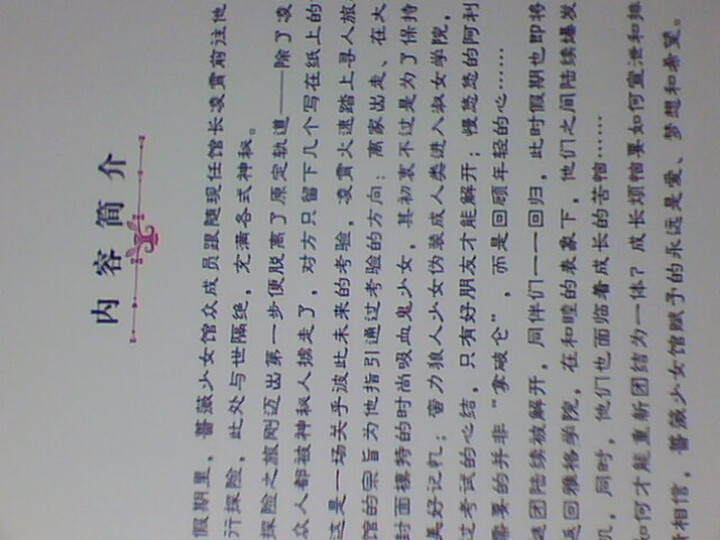 内容简介
假期里，蔷薇少女馆众成员跟随现任馆长凌霄前往他
行探险，此处与世隔绝，充满各式神秘。
探险之旅刚迈出第一步便脱离了原定轨道——除了凌
众人都被神秘人掳走了，对方只留下几个写在纸上的
这是一场关乎彼此未来的考验，凌霄火速踏上寻人旅
馆的宗旨为他指引通过考验的方向：离家出走、在火
封面模特的时尚吸血鬼少女，其初衷不过是为了保持
美好记忆；蛮力狼人少女伪装成人类进入淑女学院，
过考试的心结，只有好朋友才能解开；慢悠悠的阿利
需要的并非“拿破仑”，而是回顾年轻的心……
谜团陆续被解开，同伴们一一回归，此时假期也即将
返回雅格学院，在和睦的表象下，他们之间陆续爆发
机，同时，他们也面临着成长的苦恼……
如何才能重新团结为一体？成长烦恼要如何宣泄和排
相信，蔷薇少女馆赋予的永远是爱、梦想和希望。